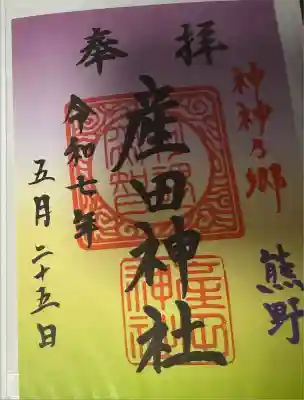 奉拝
神神乃郷
熊野
産田神社
令和七年
五月二十五日